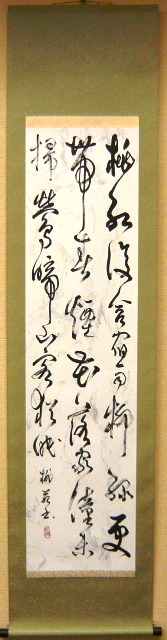 桃紅復含宿雨柳綠更
帶春煙花落家僮未
掃鶯啼山客猶眠 書